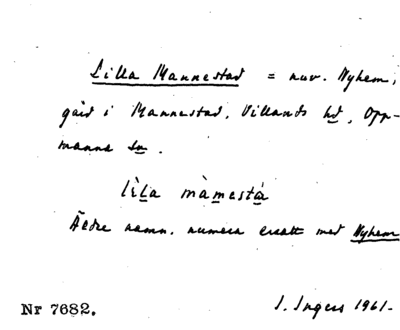 Lilla Mannestad = nuv. Nyhem,
gård i Mannestad, Villands hd, Opp-
manna sn.
lìla màmestá
Äldre namn, numera ersatt med Nyhem
Nr 7682.
I. Ingers 1961.